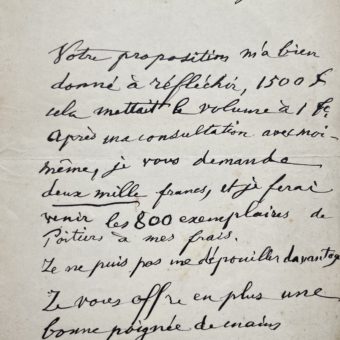 Votre proposition m'a bien
donné à réfléchir, 1500 f
cela mettait le volume à 1 fr
Après ma consultation avec moi-
même, je vous demande
deux mille francs, et je ferai
venir les 800 exemplaires de
Poitiers à mes frais.
Je ne puis pas me dépouiller davantage
Je vous offre en plus une
bonne poignée de mains